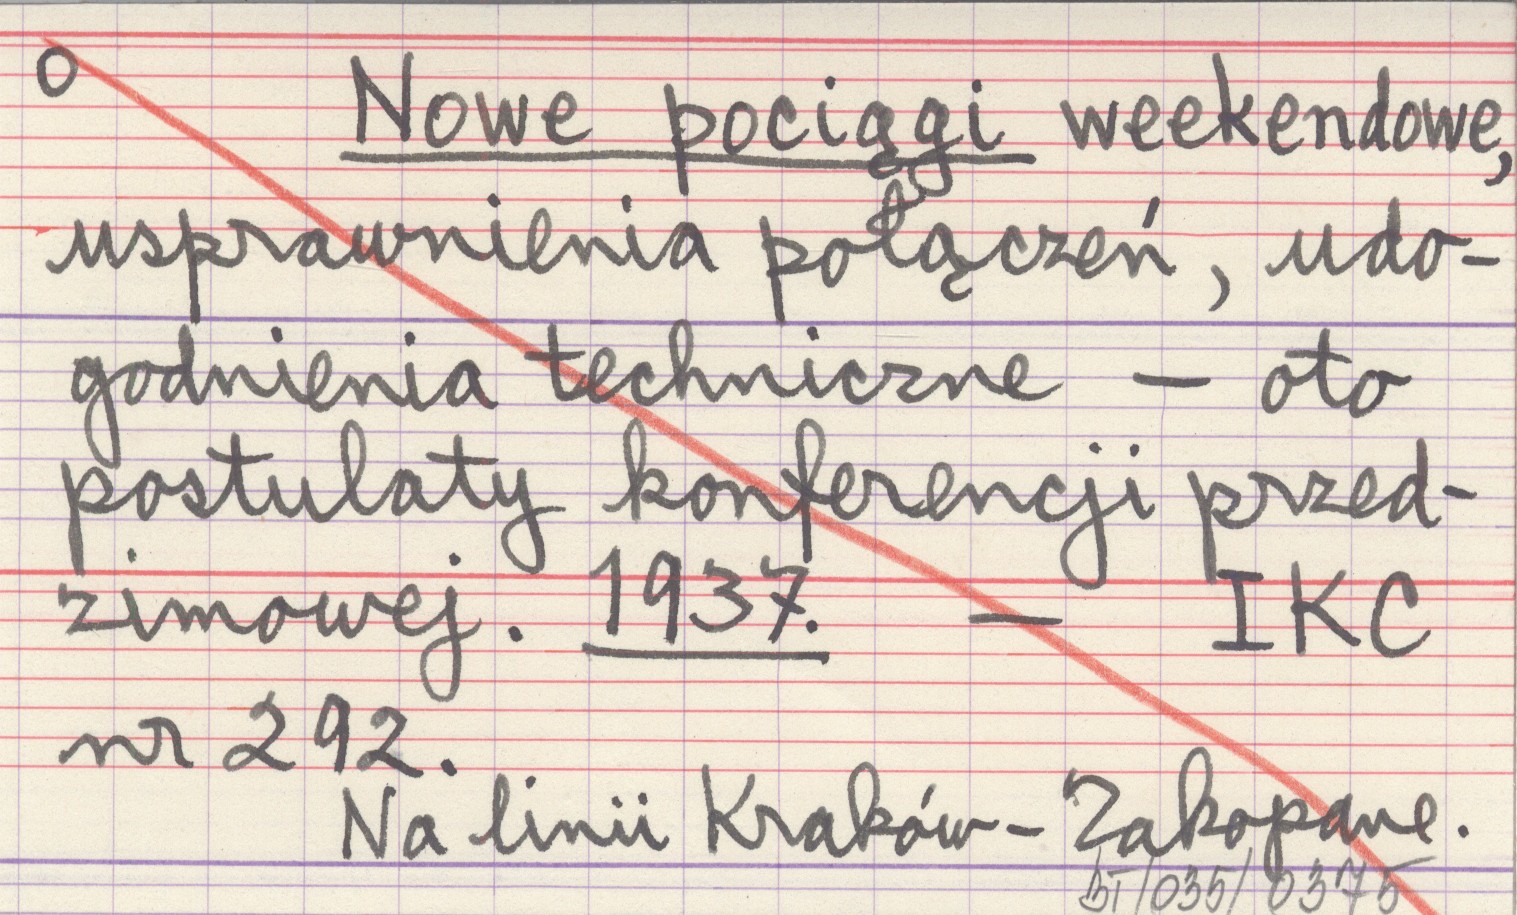 O
Nowe pociągi weekendowe,
usprawnienia połączeń, udo-
godnienia techniczne – oto
postulaty konferencji przed-
zimowej. 1937. – IKC
nr 292.
Na linii Kraków-Zakopane.
BT/035/0375